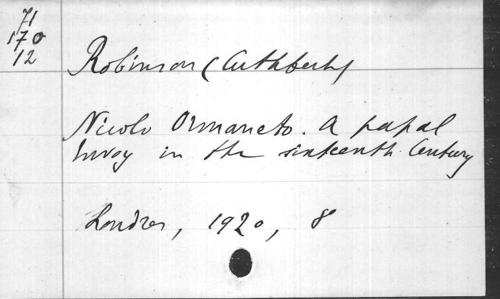 71
170
12
Robinson (Cuthbert)
Nicolo Ormaneto. A papal
Envoy in the sixteenth Century
Londres, 1920, 8